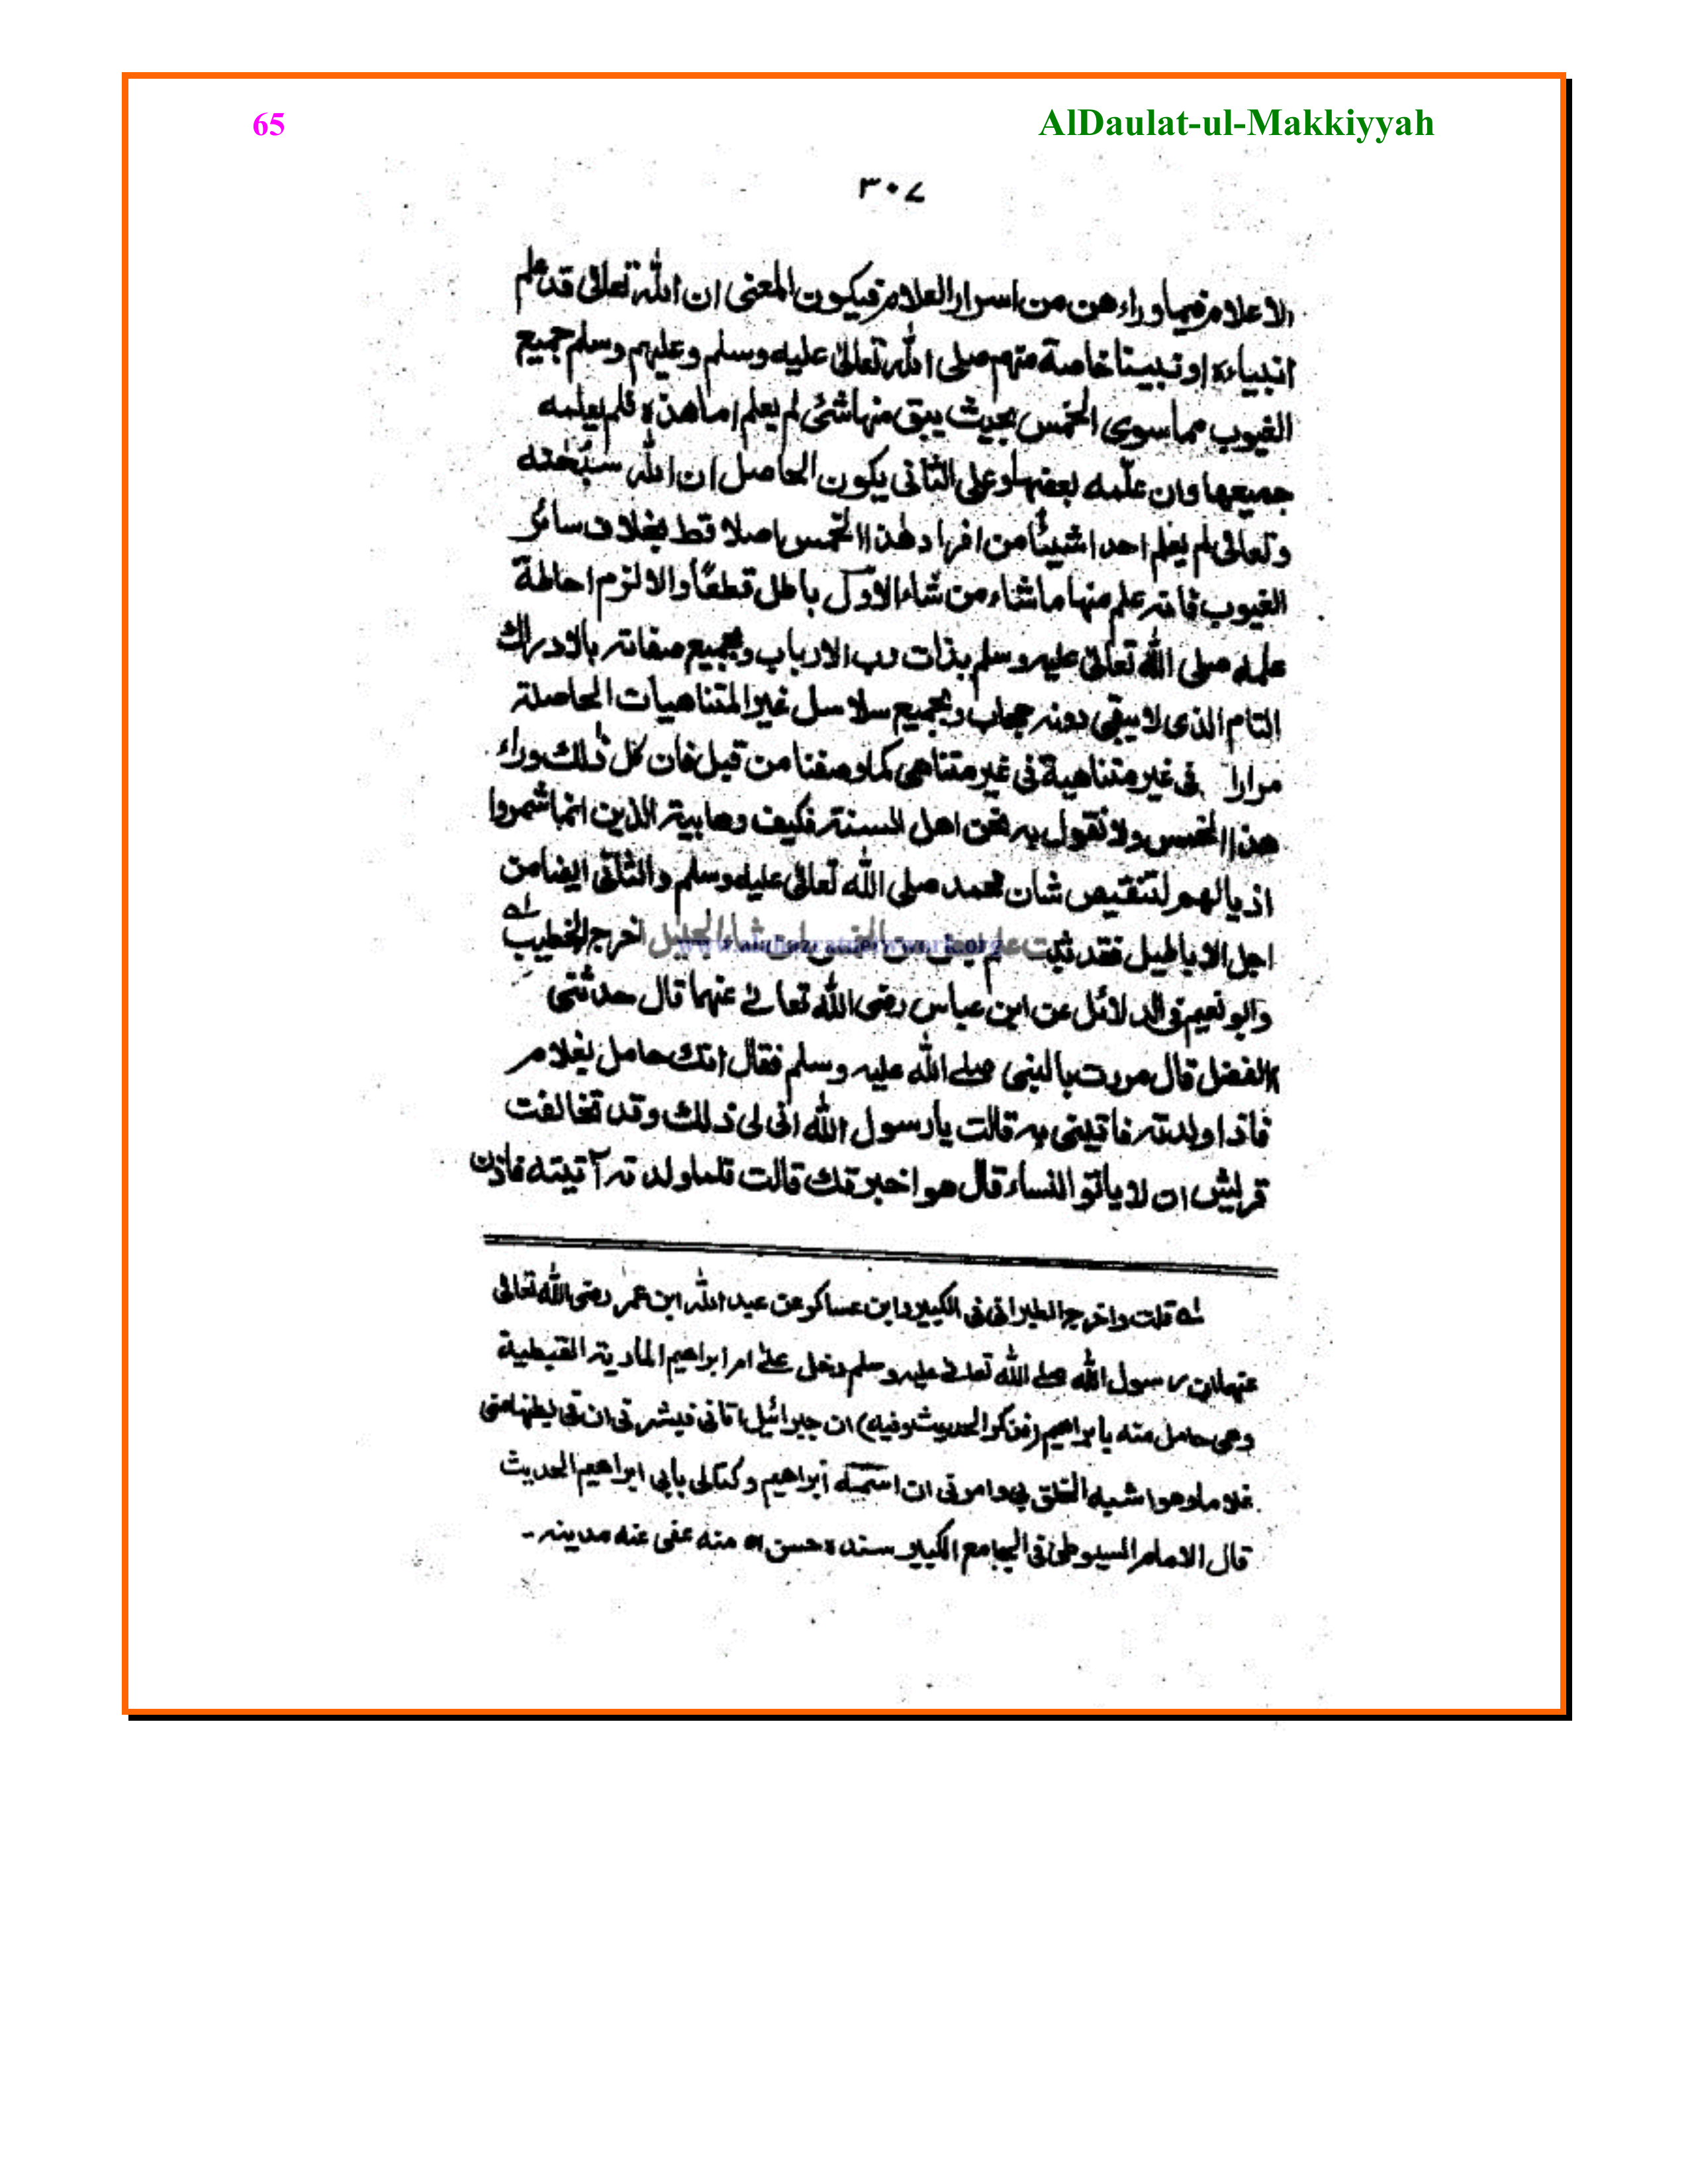 65
AlDaulat-ul-Makkiyyah
٣٠٧
الاعلام فيما وراء هن من اسرار العلام فيكون المعنى ان الله تعالى قد علم
انبياءه او نبينا خاصة منهم صلى الله تعالى عليه وسلم وعليهم وسلم جميع
الغيوب مما سوى الخمس بحيث يبق منها شئ لم يعلم اما هذه فلم يعلمه
جميعها وان علمه بعضها وعلى الثانى يكون الحاصل ان الله سبحٰنه
وتعالى لم يعلم احدا شيئا من افراد هٰذا الخمس اصلا قط بخلاف سائر
الغيوب فانه علم منها ماشاء من شاء الاول باطل قطعًا والا لزم احاطة
علمه صلى الله تعالى عليه وسلم بذات رب الارباب وبجميع صفاته بالادراك
التام الذى لا يبقى دونه حجاب وبجميع سلاسل غير المتناهيات الحاصلة
مرارا فى غير متناهية فى غير متناهى كما وصفنا من قبل فان كل ذٰلك وراء
هذا الخمس ولا نقول به نحن اهل السنة فكيف وهابية الذين انما شمروا
اذيالهم لتنقيص شان محمد صلى الله تعالى عليه وسلم والثانى ايضا من
اجل الاباطيل فقد ثبت من الخمس لمن شاء الجليل اخرج الخطيب
www.alahazratnetwork.org
وابو نعيم فى الدلائل عن ابن عباس رضى الله تعالى عنهما قال حدثتنى
الفضل قال مررت بالنبى صلى الله عليه وسلم فقال انك حامل بغلام
فاذا ولدته فاتينى به قالت يا رسول الله انى لى ذلك وقد تحالفت
قريش ان لا ياتوا النساء قال هو اخبرتك قالت فلما ولدته آتيته فاذن
له قلت واخرج الطبرانى فى الكبير وابن عساكر عن عبد الله ابن عمر رضى الله تعالى
عنهما ان رسول الله صلى الله تعالى عليه وسلم دخل على ام ابراهيم المارية القبطية
وهى حامل منه بابراهيم (فذكر الحديث وفيه) ان جبرائيل اتانى فبشرنى ان فى بطنها منى
غلاما وهو اشبه الخلق بى وامرنى ان اسميه ابراهيم وكنانى بابى ابراهيم الحديث
قال الامام السيوطى فى الجامع الكبير سنده حسن اه منه عفى عنه مدينه -